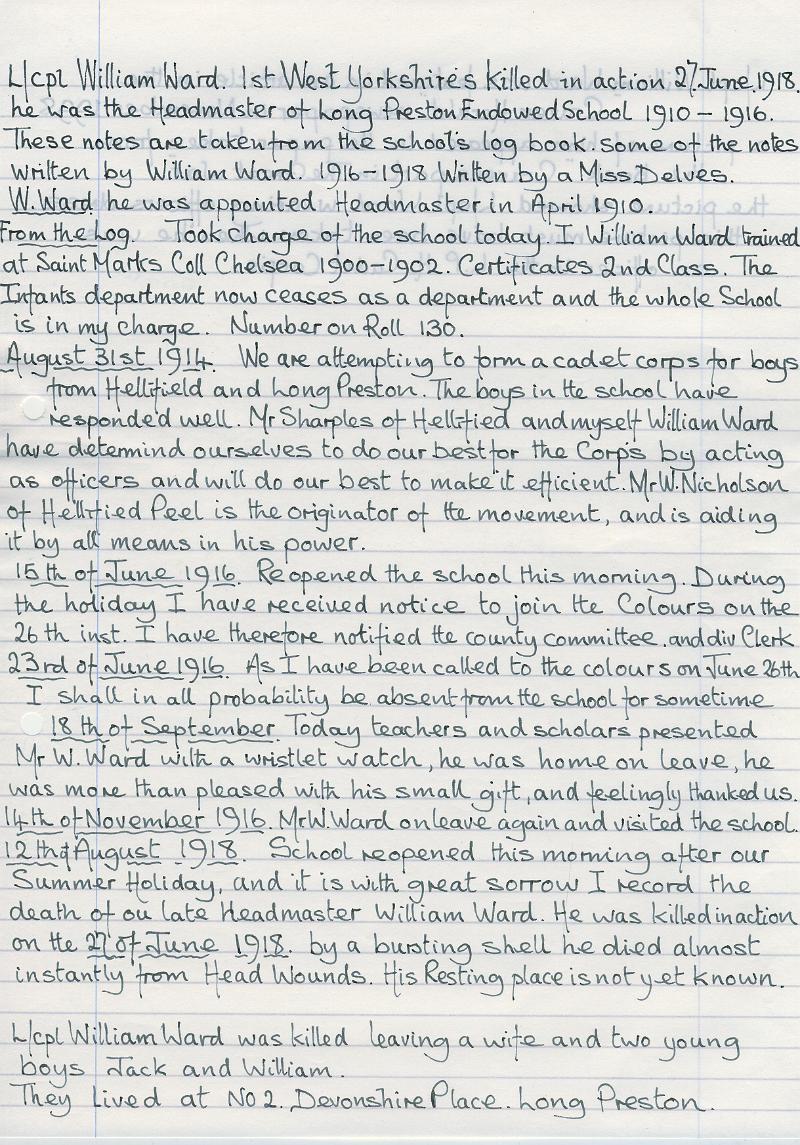 L/cpl William Ward. 1st West Yorkshires killed in action 27.June.1918.
he was the Headmaster of Long Preston Endowed School 1910 – 1916.
These notes are taken from the school's log book. some of the notes
written by William Ward. 1916–1918 Written by a Miss Delves.
W. Ward he was appointed Headmaster in April 1910.
From the Log. Took charge of the school today. I William Ward trained
at Saint Marks Coll Chelsea 1900–1902. Certificates 2nd Class. The
Infants department now ceases as a department and the whole School
is in my charge. Number on Roll 130.
August 31st 1914. We are attempting to form a cadet corps for boys
from Hellifield and Long Preston. The boys in the school have
responded well. Mr Sharples of Hellified and myself William Ward
have determind ourselves to do our best for the Corps by acting
as officers and will do our best to make it efficient. Mr W. Nicholson
of Hellified Peel is the originator of the movement, and is aiding
it by all means in his power.
15th of June 1916. Reopened the school this morning. During
the holiday I have received notice to join the Colours on the
26th inst. I have therefore notified the county committee. and div Clerk
23rd of June 1916. As I have been called to the colours on June 26th
I shall in all probability be absent from the school for sometime
18th of September. Today teachers and scholars presented
Mr W. Ward with a wristlet watch, he was home on leave, he
was more than pleased with his small gift, and feelingly thanked us.
14th of November 1916. Mr W. Ward on leave again and visited the school.
12th of August 1918. School reopened this morning after our
Summer Holiday, and it is with great sorrow I record the
death of ou late Headmaster William Ward. He was killed in action
on the 27 of June 1918. by a bursting shell he died almost
instantly from Head Wounds. His Resting place is not yet known.
L/cpl William Ward was killed leaving a wife and two young
boys Jack and William.
They Lived at No 2. Devonshire Place. Long Preston.